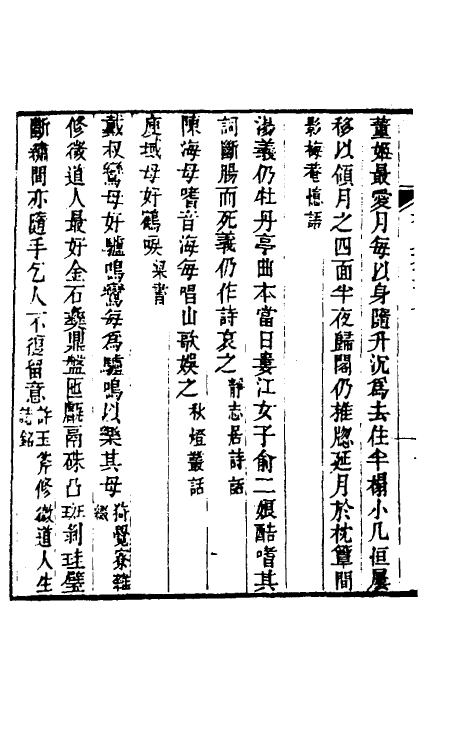 董姬最愛月每以身隨升沉爲去住半榻小几恒屢
移以領月之四面半夜歸閣仍推牕延月於枕簟間
影梅菴憶語
湯義仍牡丹亭曲本當日婁江女子俞二娘酷嗜其
詞斷腸而死義仍作詩哀之靜志居詩話
陳海母嗜音海每唱山歌娛之秋燈叢話
庾域母好鶴唳梁書
戴叔鸞母好驢鳴鸞每爲驢鳴以樂其母猗覺寮雜
綴
修微道人最好金石彝鼎盤匜甗鬲硃凸斑剝珪璧
斷繡間亦隨手乞人不復留意許玉斧修微道人生
誌銘